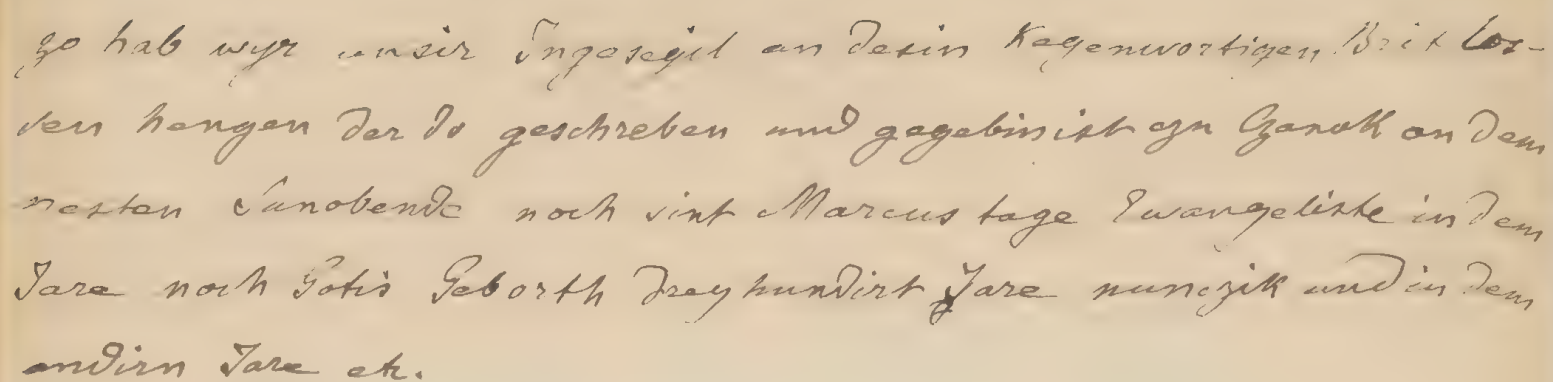 zo hab wyr unsir Ingesegil an desin Kegenwortigen Brif los-
sen hengen der do geschreben und gegebin ist czn Czanok an dem
nesten Sunobende noch sint Marcus tage Ewangeliste in dem
Jare noch Gotis Geborth dreyhundirt Jare nunczik und in dem
andirn Jare etc.